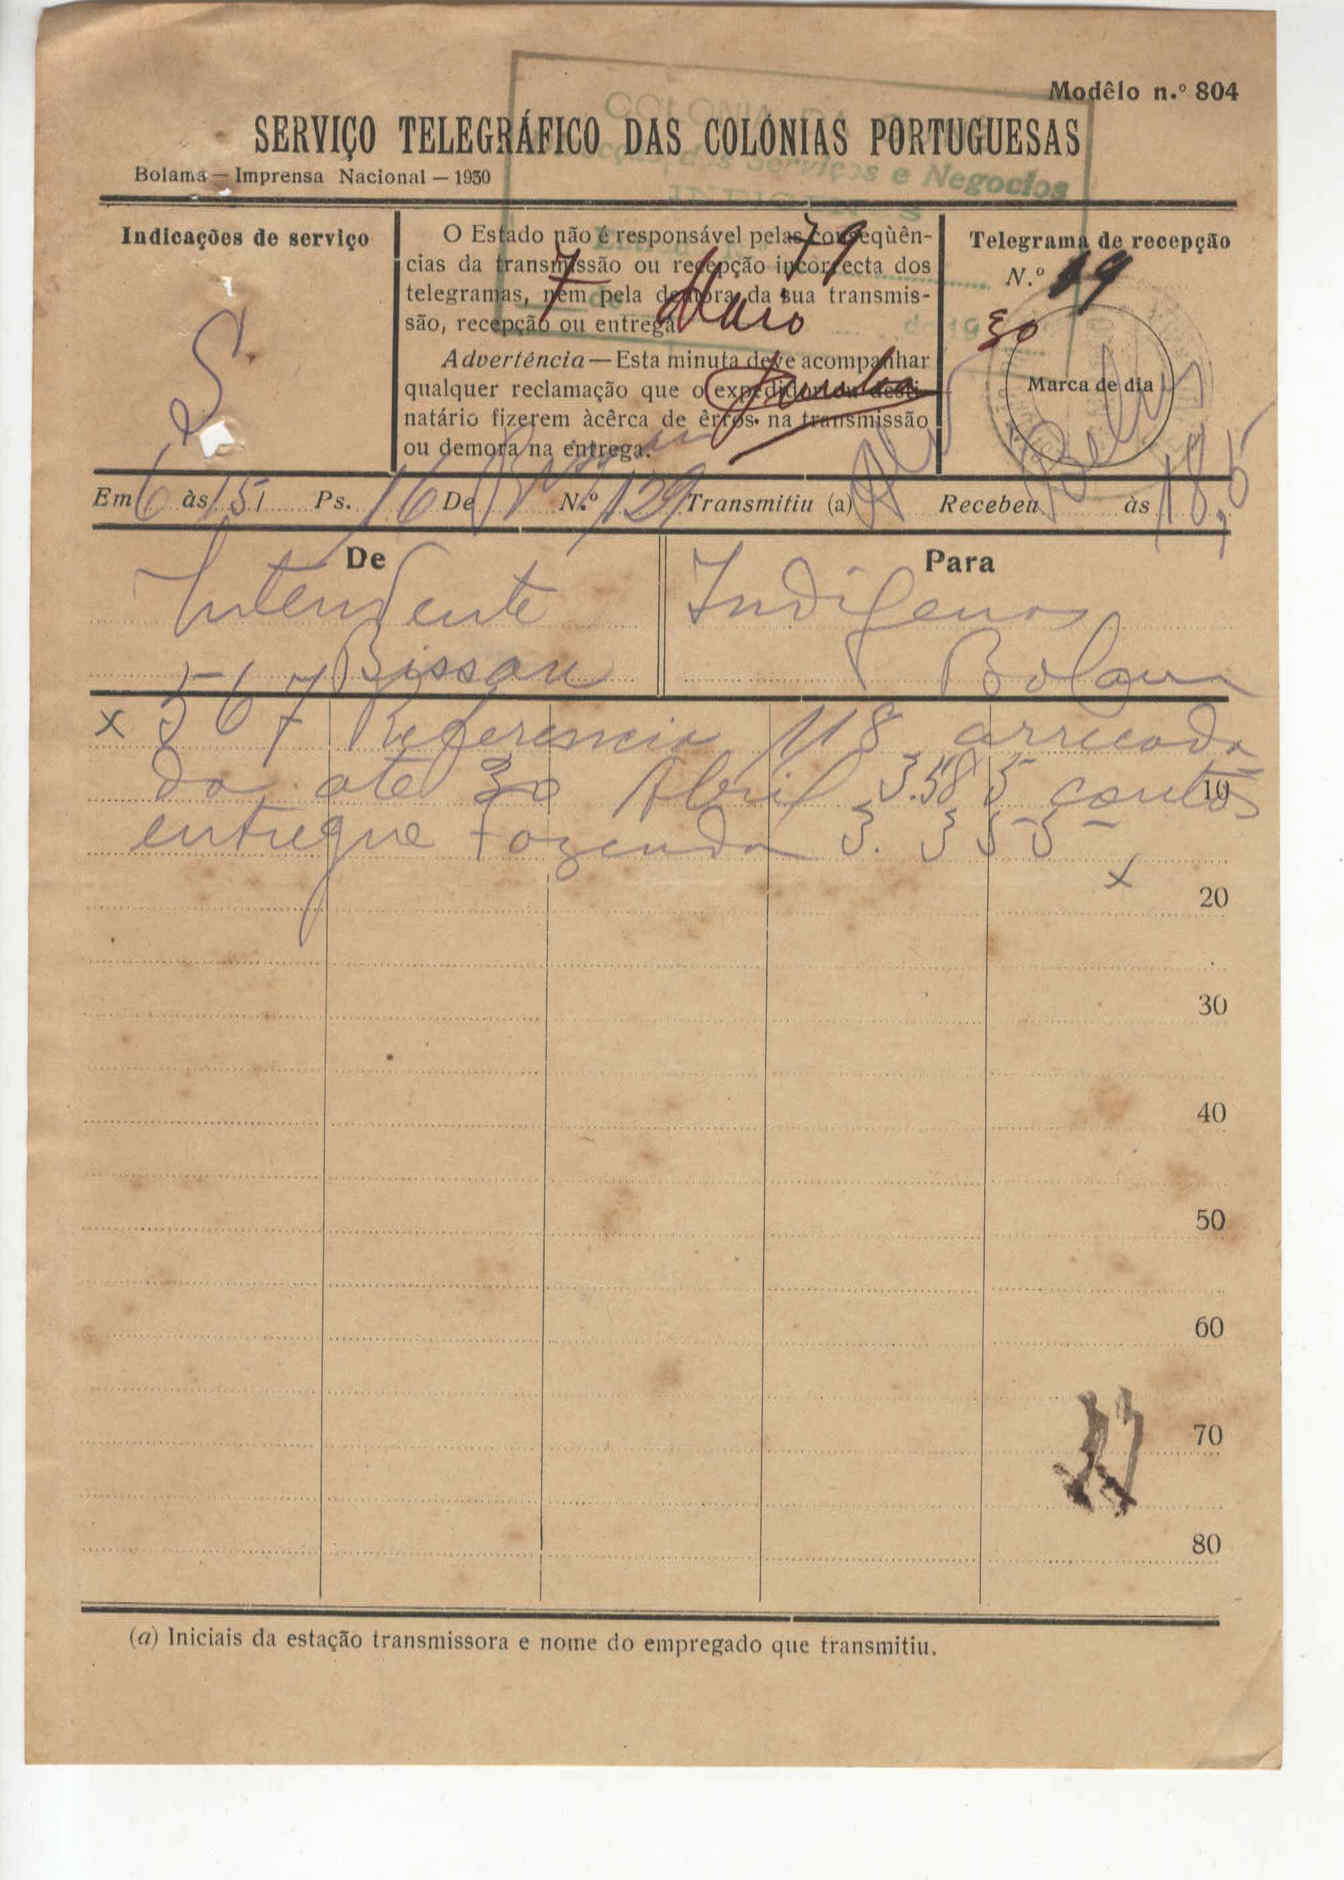 Modêlo n.º 804
SERVIÇO TELEGRÁFICO DAS COLÓNIAS PORTUGUESAS
Bolama — Imprensa Nacional — 1930
COLONIA DA
dos Serviços e Negocios
Indicações de serviço
S
O Estado não é responsável pelas conseqùên-
cias da transmissão ou recepção incorrecta dos
telegramas, nem pela demora da sua transmis-
são, recepção ou entrega.
Advertência — Esta minuta deve acompanhar
qualquer reclamação que o expedidor ou desti-
natário fizerem àcêrca de êrros na transmissão
ou demora na entrega.
79
7 Maio
de 19
30
Telegrama de recepção
N.º 19
Marca de dia
Em 6 às 151 Ps. 16 De N.º 129 Transmitiu (a) Recebeu às 18,5
De
Intendente
Bissau
Para
Indigenas
Bolama
x 567 Referencia 118 arrecada
da até 30 Abril 3.585 contos
entregue Fazenda 3.355 x
10
20
30
40
50
60
70
80
(a) Iniciais da estação transmissora e nome do empregado que transmitiu.